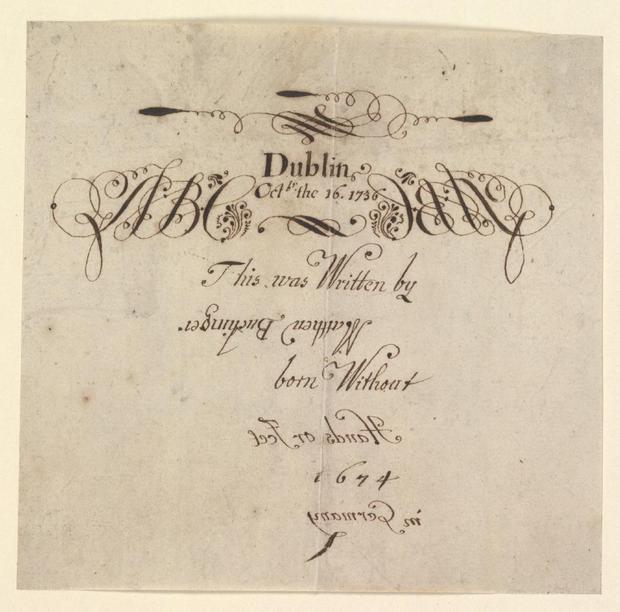 Dublin
Octbr the 16. 1736
ABC ABC
This was Written by
Matthew Buchinger.
born Without
Hands or Feet
1674
in Germany